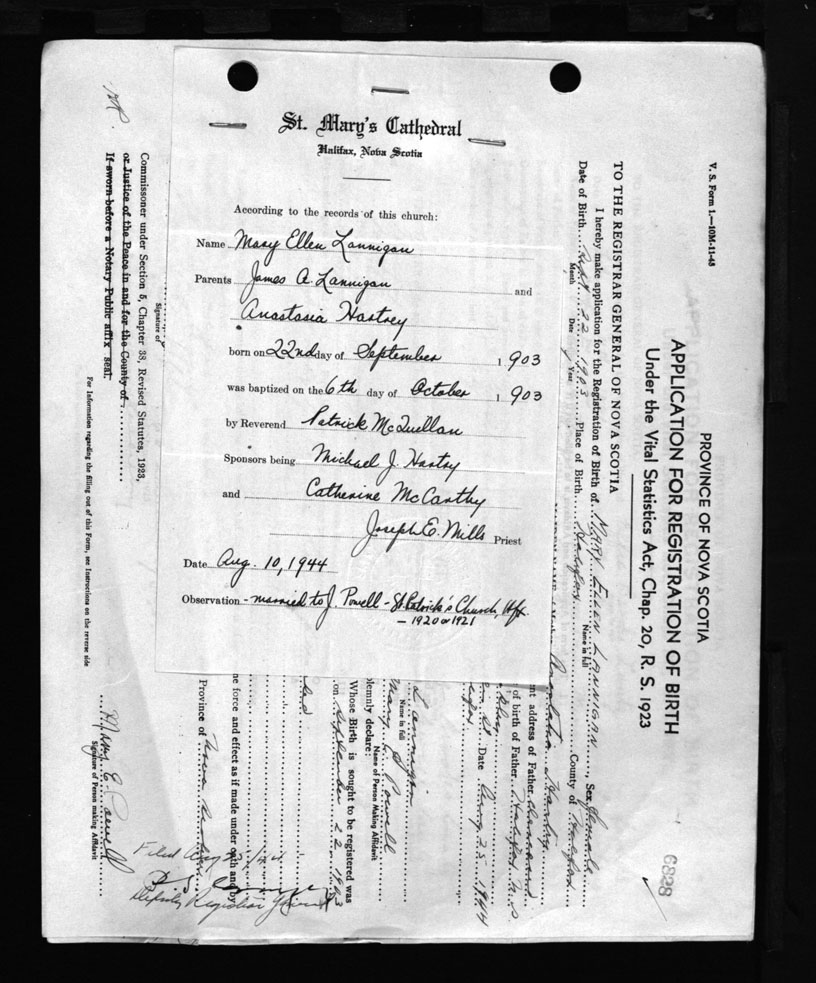 St. Mary's Cathedral
Halifax, Nova Scotia
According to the records of this church:
Name Mary Ellen Lannigan
Parents James A. Lannigan and
Anastasia Hartrey
born on 22nd day of September 1903
was baptized on the 6th day of October 1903
by Reverend Patrick McQuillan
Sponsors being Michael J. Hartry
and Catherine McCarthy
Joseph E. Mills Priest
Date Aug. 10, 1944
Observation - married to J. Powell - St. Patrick's Church, Hfx.
- 1920 or 1921
V. S. Form 1.—10M-11-43
PROVINCE OF NOVA SCOTIA
APPLICATION FOR REGISTRATION OF BIRTH
Under the Vital Statistics Act, Chap. 20, R. S. 1923
6898
TO THE REGISTRAR GENERAL OF NOVA SCOTIA
I hereby make application for the Registration of Birth of MARY ELLEN LANNIGAN, Sex female
Name in full
Date of Birth Sept 22 1903 Place of Birth Halifax County of Halifax
Month Date Year
Anastatia Hartry
nt address of Father Deceased
of birth of Father Halifax N.S.
St. Date Aug 25 1944
Lannigan
Name in full
Mary E. Powell
Name of Person Making Affidavit
olemnly declare:
Whose Birth is sought to be registered was
on September 22 1903
ne force and effect as if made under oath and by
Province of Nova Scotia
Filed Aug 25/44
Deputy Registrar General
Signature of
Commissioner under Section 5, Chapter 38, Revised Statutes, 1923,
or Justice of the Peace in and for the County of
If sworn before a Notary Public affix seal.
Mary E. Powell
Signature of Person making Affidavit
For Information regarding the filling out of this Form, see Instructions on the reverse side